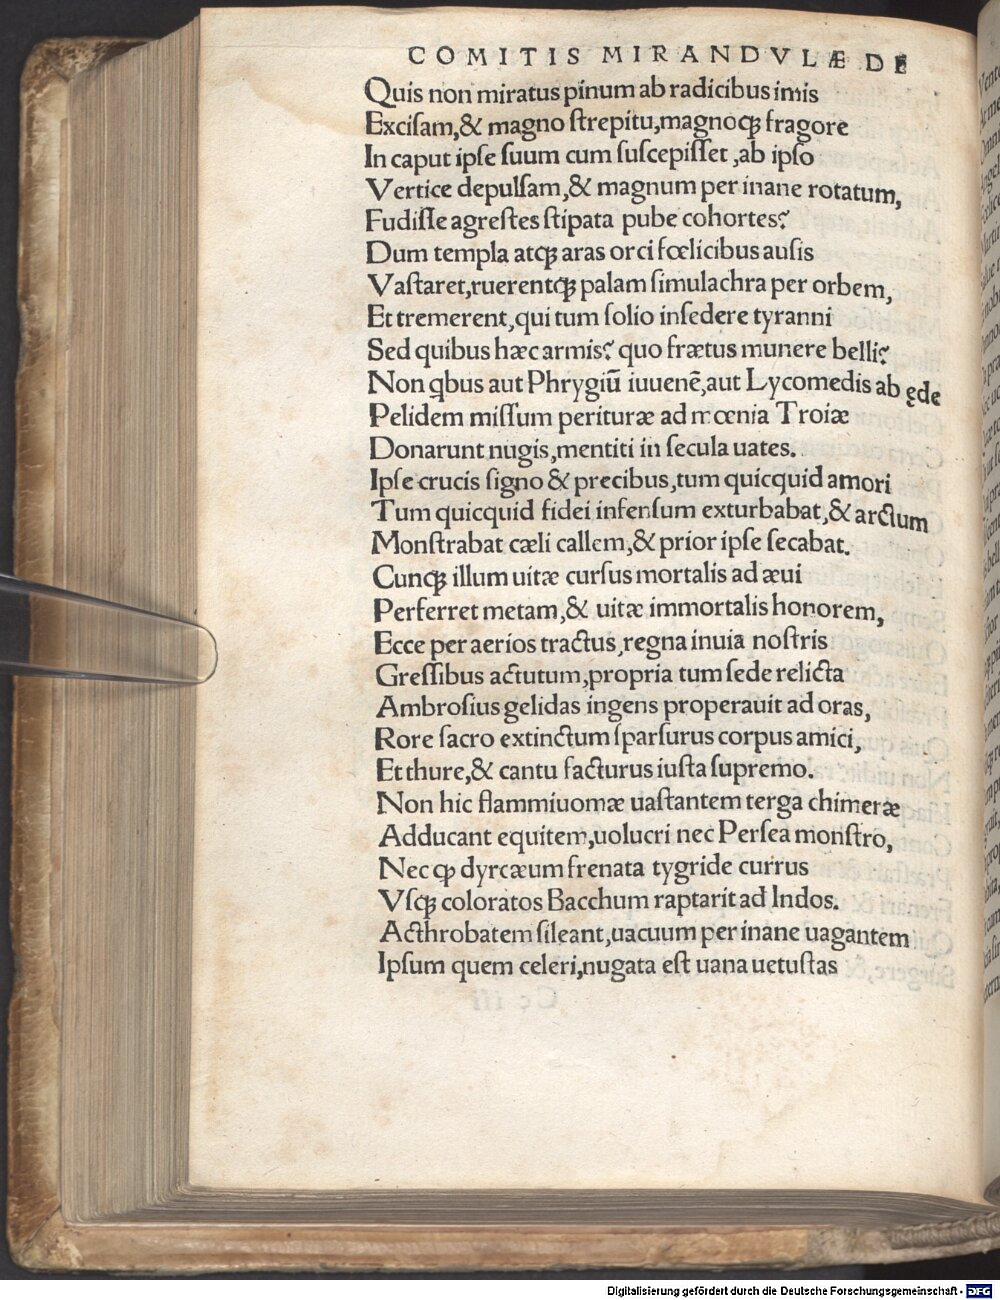 COMITIS MIRANDVLÆ DE
Quis non miratus pinum ab radicibus imis
Exciſam,& magno ſtrepitu,magnoqꝫ fragore
In caput ipſe ſuum cum ſuſcepiſſet ,ab ipſo
Vertice depulſam,& magnum per inane rotatum,
Fudiſſe agreſtes ſtipata pube cohortes?
Dum templa atqꝫ aras orci fœlicibus auſis
Vaſtaret,ruerentqꝫ palam ſimulachra per orbem,
Et tremerent,qui tum ſolio inſedere tyranni
Sed quibus hæc armis? quo frætus munere belli?
Non qbus aut Phrygiū iuuenē,aut Lycomedis ab ęde
Pelidem miſſum perituræ ad mœnia Troiæ
Donarunt nugis,mentiti in ſecula uates.
Ipſe crucis ſigno & precibus,tum quicquid amori
Tum quicquid fidei infenſum exturbabat,& arctum
Monſtrabat cæli callem,& prior ipſe ſecabat.
Cunqꝫ illum uitæ curſus mortalis ad æui
Perferret metam,& uitæ immortalis honorem,
Ecce per aerios tractus,regna inuia noſtris
Greſſibus actutum,propria tum ſede relicta
Ambroſius gelidas ingens properauit ad oras,
Rore ſacro extinctum ſparſurus corpus amici,
Et thure,& cantu facturus iuſta ſupremo.
Non hic flammiuomæ uaſtantem terga chimeræ
Adducant equitem,uolucri nec Perſea monſtro,
Nec ꝙ dyrcæum frenata tygride currus
Vſqꝫ coloratos Bacchum raptarit ad Indos.
Acthrobatem ſileant,uacuum per inane uagantem
Ipſum quem celeri,nugata eſt uana uetuſtas
Digitalisierung gefördert durch die Deutsche Forschungsgemeinschaft - DFG